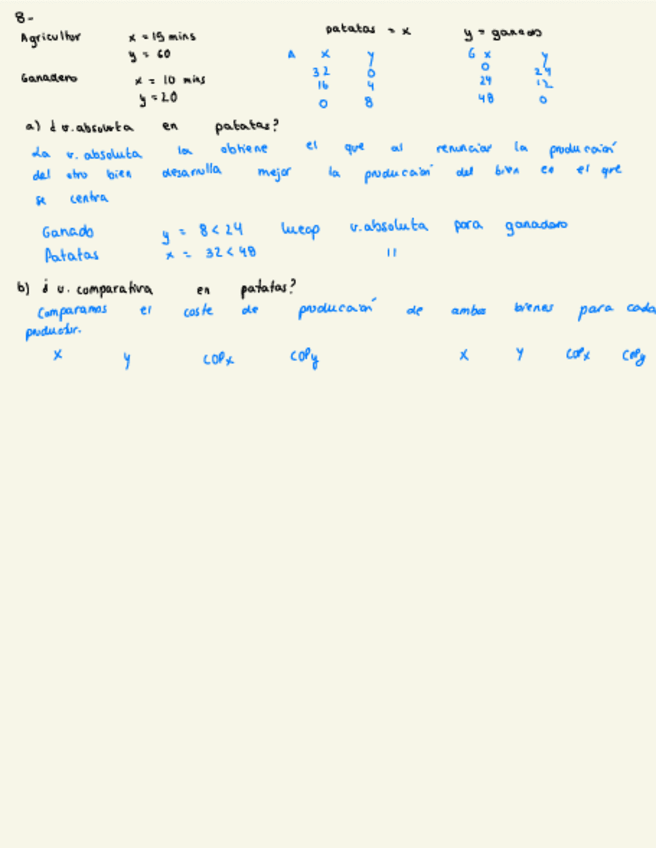 8-
Agricultor x = 15 mins patatas = x y = ganado
y = 60 A x y G x y
32 0 0 24
Ganadero x = 10 mins 16 4 24 12
y = 20 0 8 48 0
a) ¿ v. absoluta en patatas?
La v. absoluta la obtiene el que al renunciar la producción
del otro bien desarrolla mejor la producción del bien en el que
se centra
Ganado y = 8 < 24 luego v. absoluta para ganadero
Patatas x = 32 < 48 "
b) ¿ v. comparativa en patatas?
Comparamos el coste de producción de ambos bienes para cada
productor.
x y COPx COPy x y COPx COPy